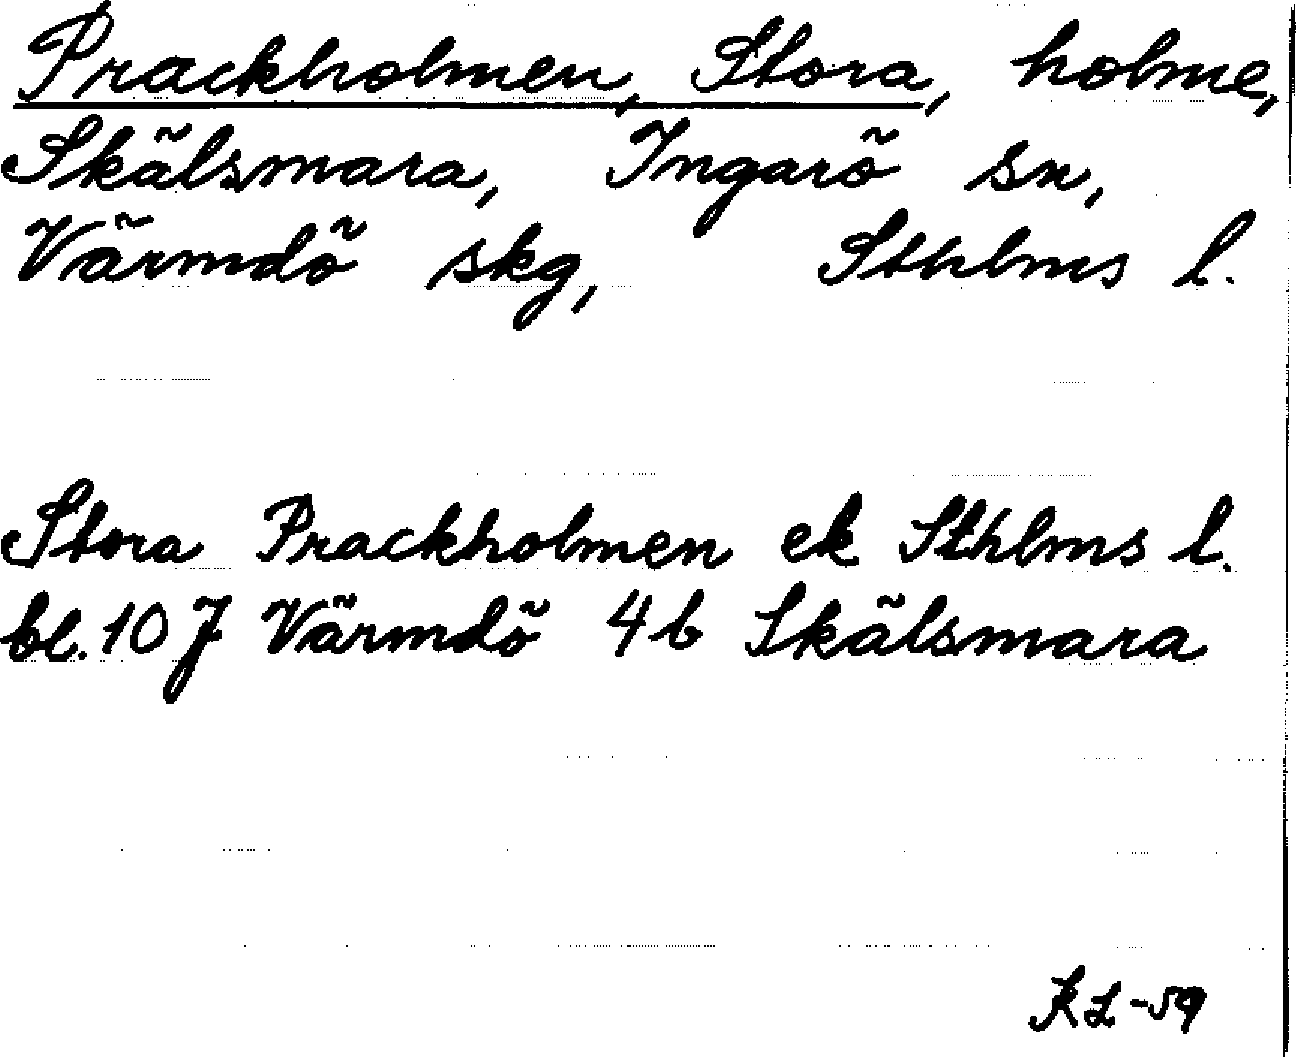 Prackholmen, Stora, holme,
Skälsmara, Ingarö sn,
Värmdö skg, Sthlms l.
Stora Prackholmen ek Sthlms l.
bl. 10 J Värmdö 4b Skälsmara
KL-59